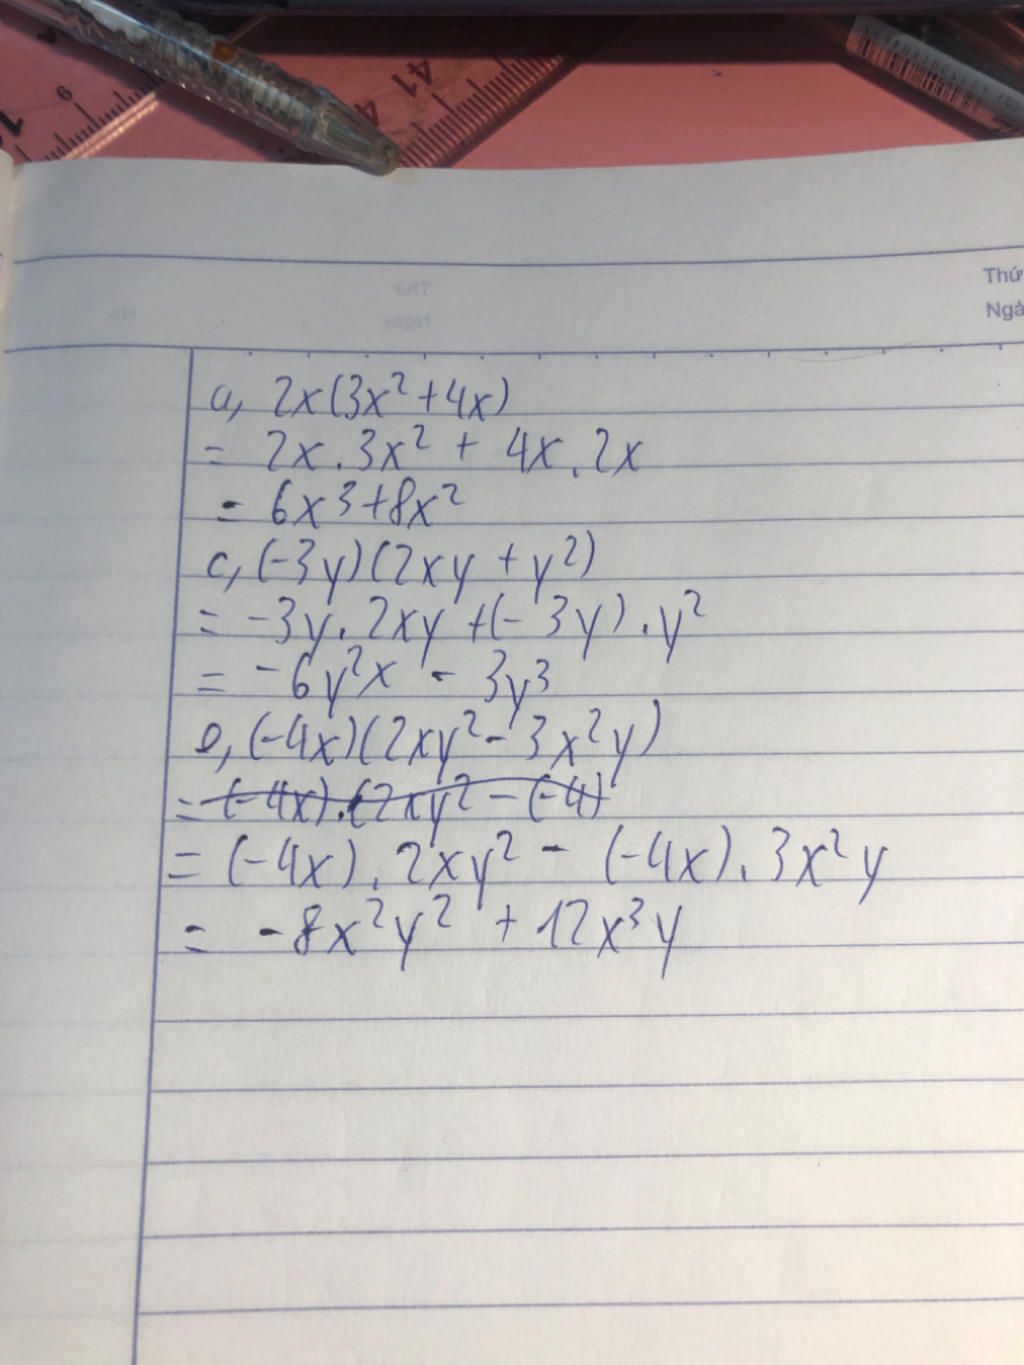 Thứ
Ngà
a, 2x(3x²+4x)
= 2x.3x² + 4x.2x
= 6x³+8x²
c, (-3y)(2xy + y²)
= -3y.2xy +(-3y).y²
= -6y²x - 3y³
e, (-4x)(2xy²-3x²y)
= (-4x).(2xy² - (-4)
= (-4x).2xy² - (-4x).3x²y
= -8x²y² + 12x³y